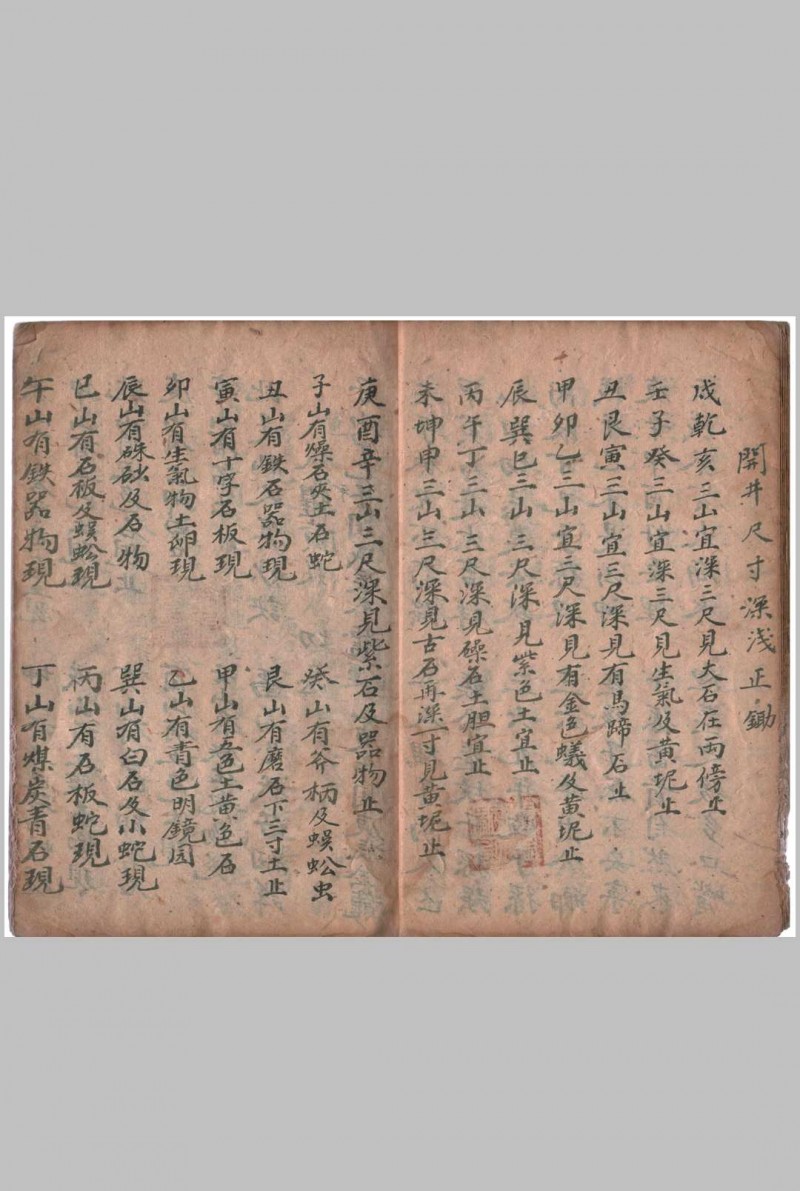 開井尺寸深浅正鋤
戌乾亥三山宜深三尺見大石在両傍止
壬子癸三山宜深三尺見生氣及黄坭止
丑艮寅三山宜三尺深見有馬蹄石止
甲卯乙三山宜三尺深見有金色蟻及黄坭止
辰巽巳三山三尺深見紫色土宜止
丙午丁三山三尺深見磉石土胆宜止
未坤申三山三尺深見古石再深一寸見黄坭止
庚酉辛三山三尺深見紫石及器物止
子山有燥石夾土石蛇
癸山有斧柄及蜈蚣虫
丑山有鉄石器物現
艮山有磨石下三寸土止
寅山有十字石板現
甲山有五色土黄色石
卯山有生氣物土卵現
乙山有青色明鏡园
辰山有硃砂及石物
巽山有白石及小蛇現
巳山有石板及蜈蚣現
丙山有石板蛇現
午山有鉄器物現
丁山有煤炭青石現